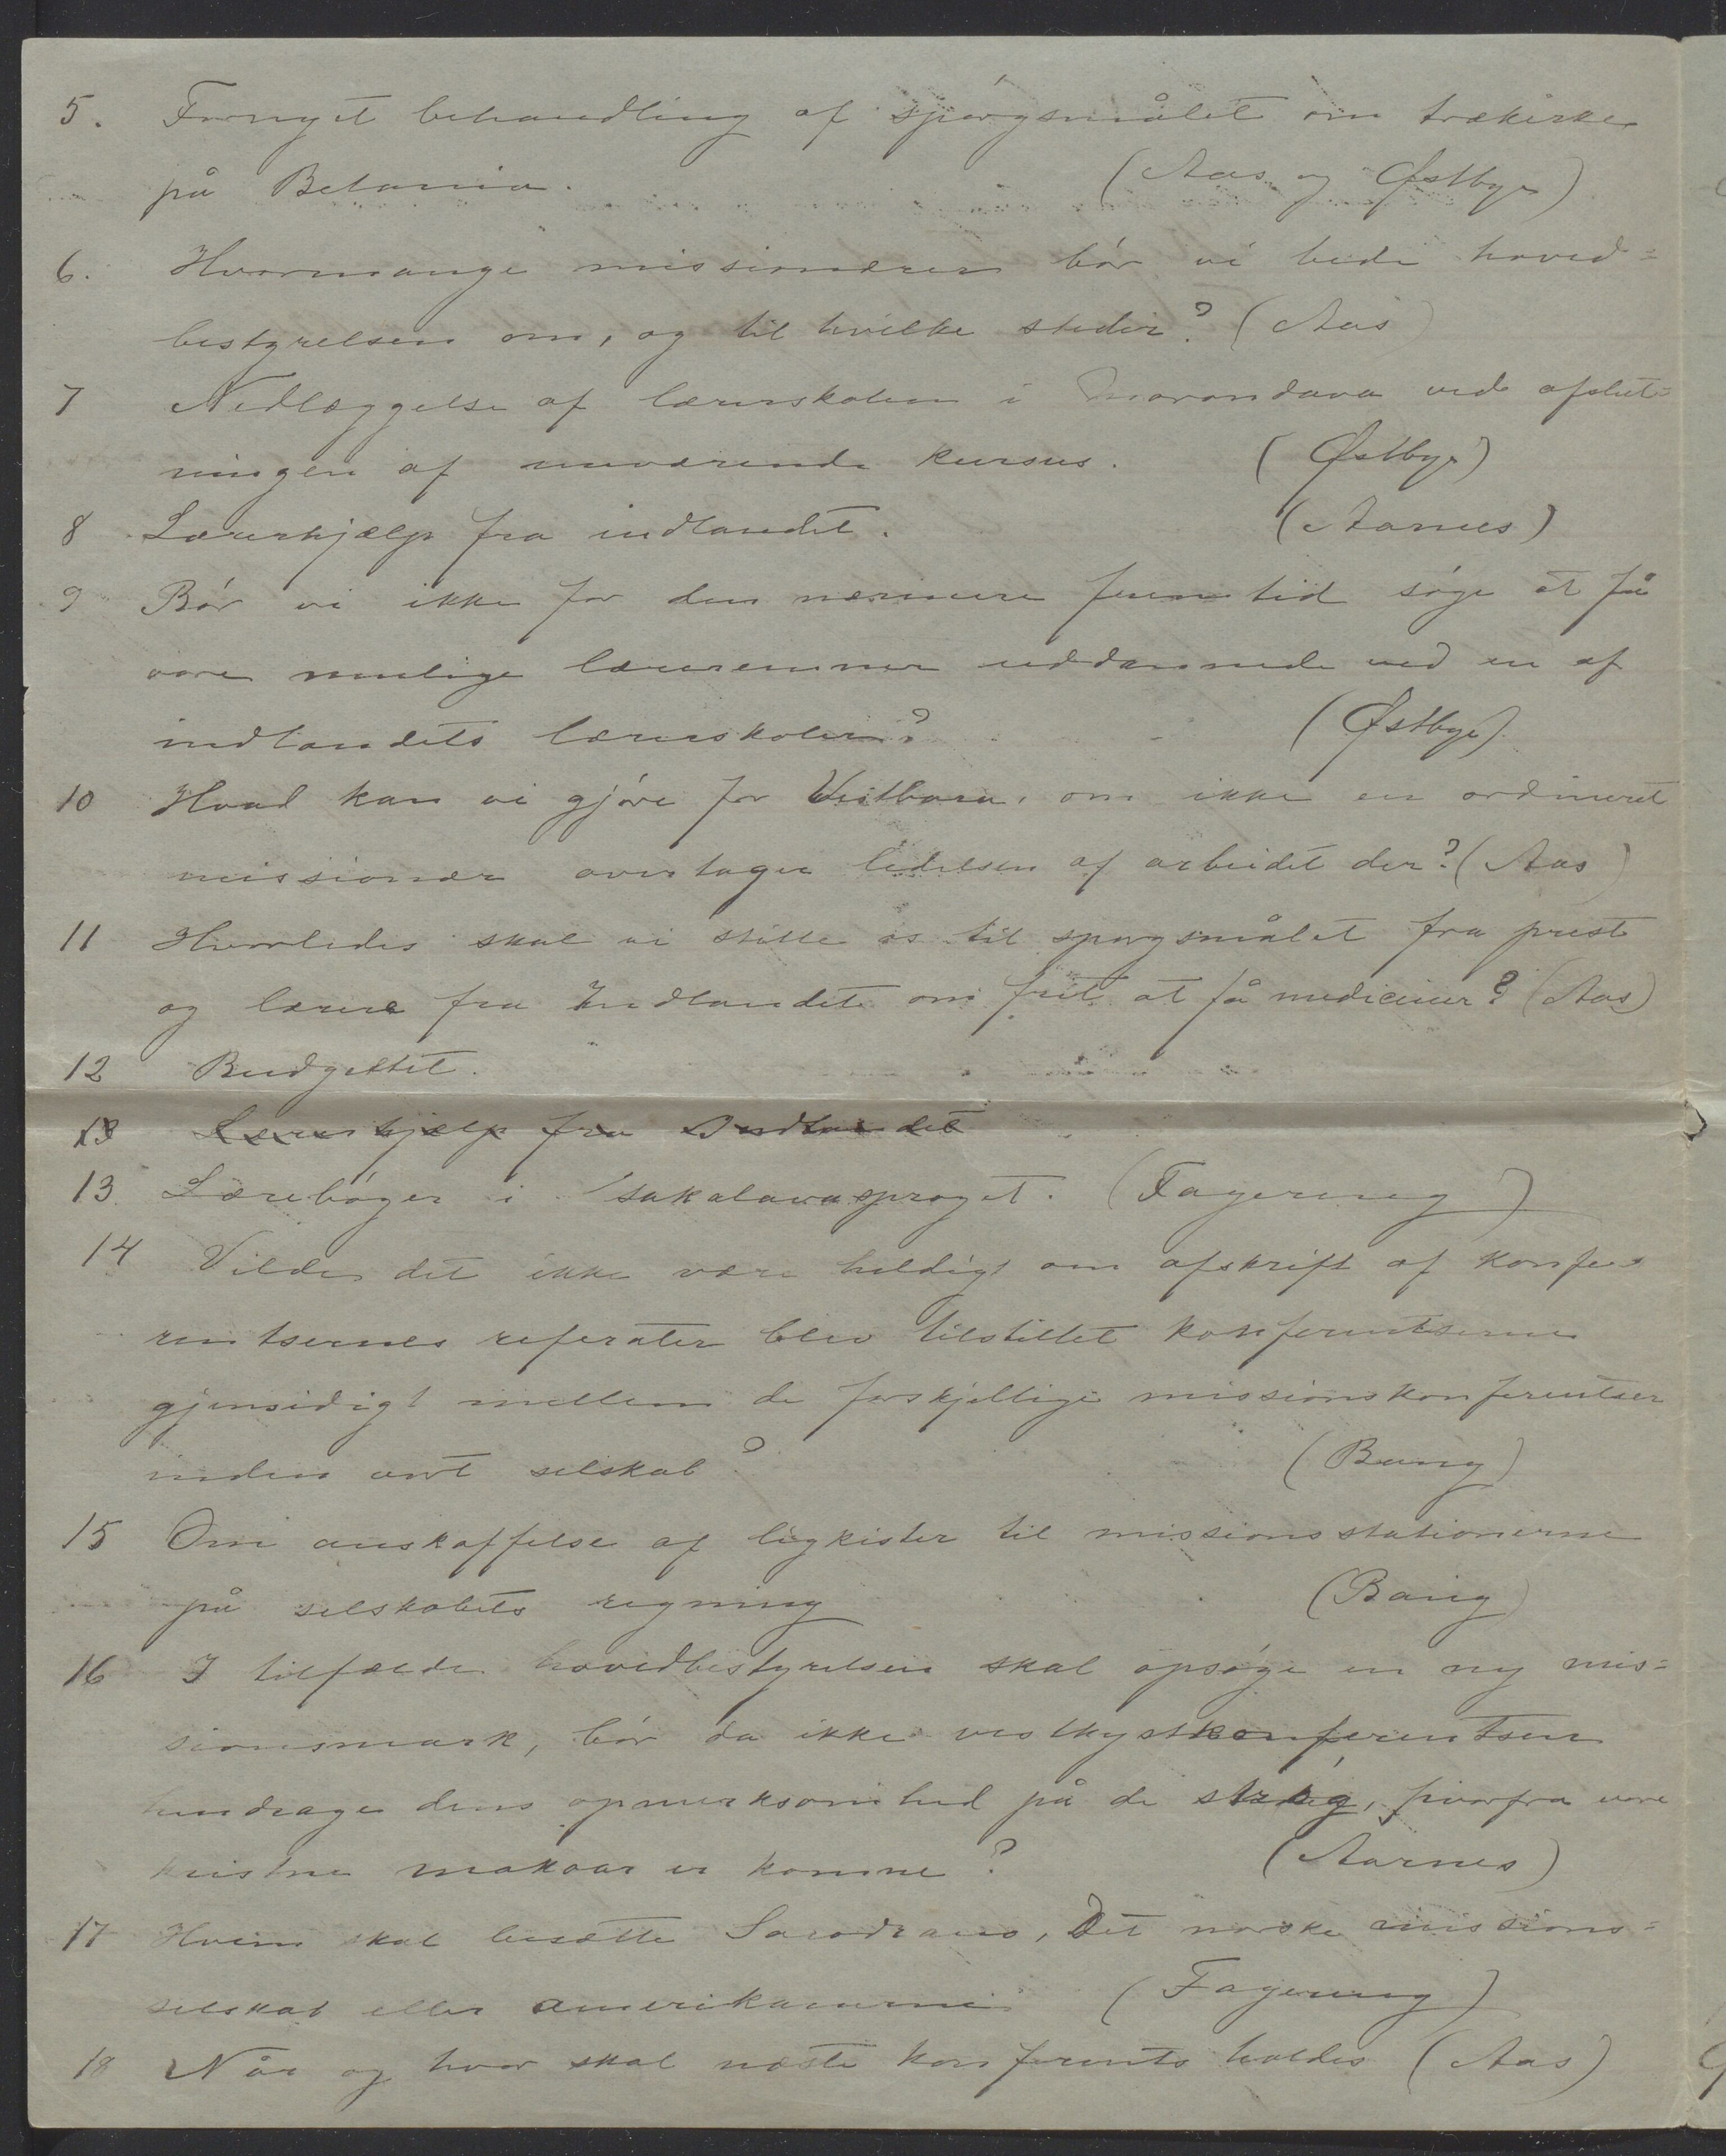 5. Fornyet behandling af spørgsmålet om trækirke
på Betania. (Aas og Østbye)
6. Hvormange missionærer bør vi bede hoved=
bestyrelsen om, og til hvilke steder? (Aas)
7 Nedlæggelse af lærerskolen i Morondava ved afslut=
ningen af nuværende kursus. (Østbye)
8 Lærerhjælp fra indlandet. (Aarnes)
9 Bør vi ikke for den nærmere fremtid søge at få
vore mulige læreremner uddannede ved en af
indlandets lærerskoler? (Østbye)
10 Hvad kan vi gjøre for om ikke en ordineret
missionær overtager ledelsen af arbeidet der? (Aas)
11 Hvorledes skal vi stille os til spørgsmålet fra prest
og lærere fra Indlandet om frit at få mediciner? (Aas)
12 Budgettet.
13 Lærerhjælp fra Indlandet
13. Lærebøger i sakalavasproget. (Fagereng)
14 Vilde det ikke være heldigt om afskrift af konfe=
rentsernes referater blev tilstillet konferentserne
gjensidigt mellem de forskjellige missionskonferentser
inden vort selskab? (Bang)
15 Om anskaffelse af ligkister til missionsstationerne
på selskabets regning (Bang)
16 I tilfælde hovedbestyrelsen skal opsøge en ny mis=
sionsmark, bør da ikke vestkystkonferentsen
hendrage dens opmerksomhed på de strøg, hvorfra vore
kristne makoar er komne? (Aarnes)
17 Hvem skal besætte Sarodrano, Det norske missions=
selskab eller amerikanerne (Fagereng)
18 Når og hvor skal næste konferents holdes (Aas)